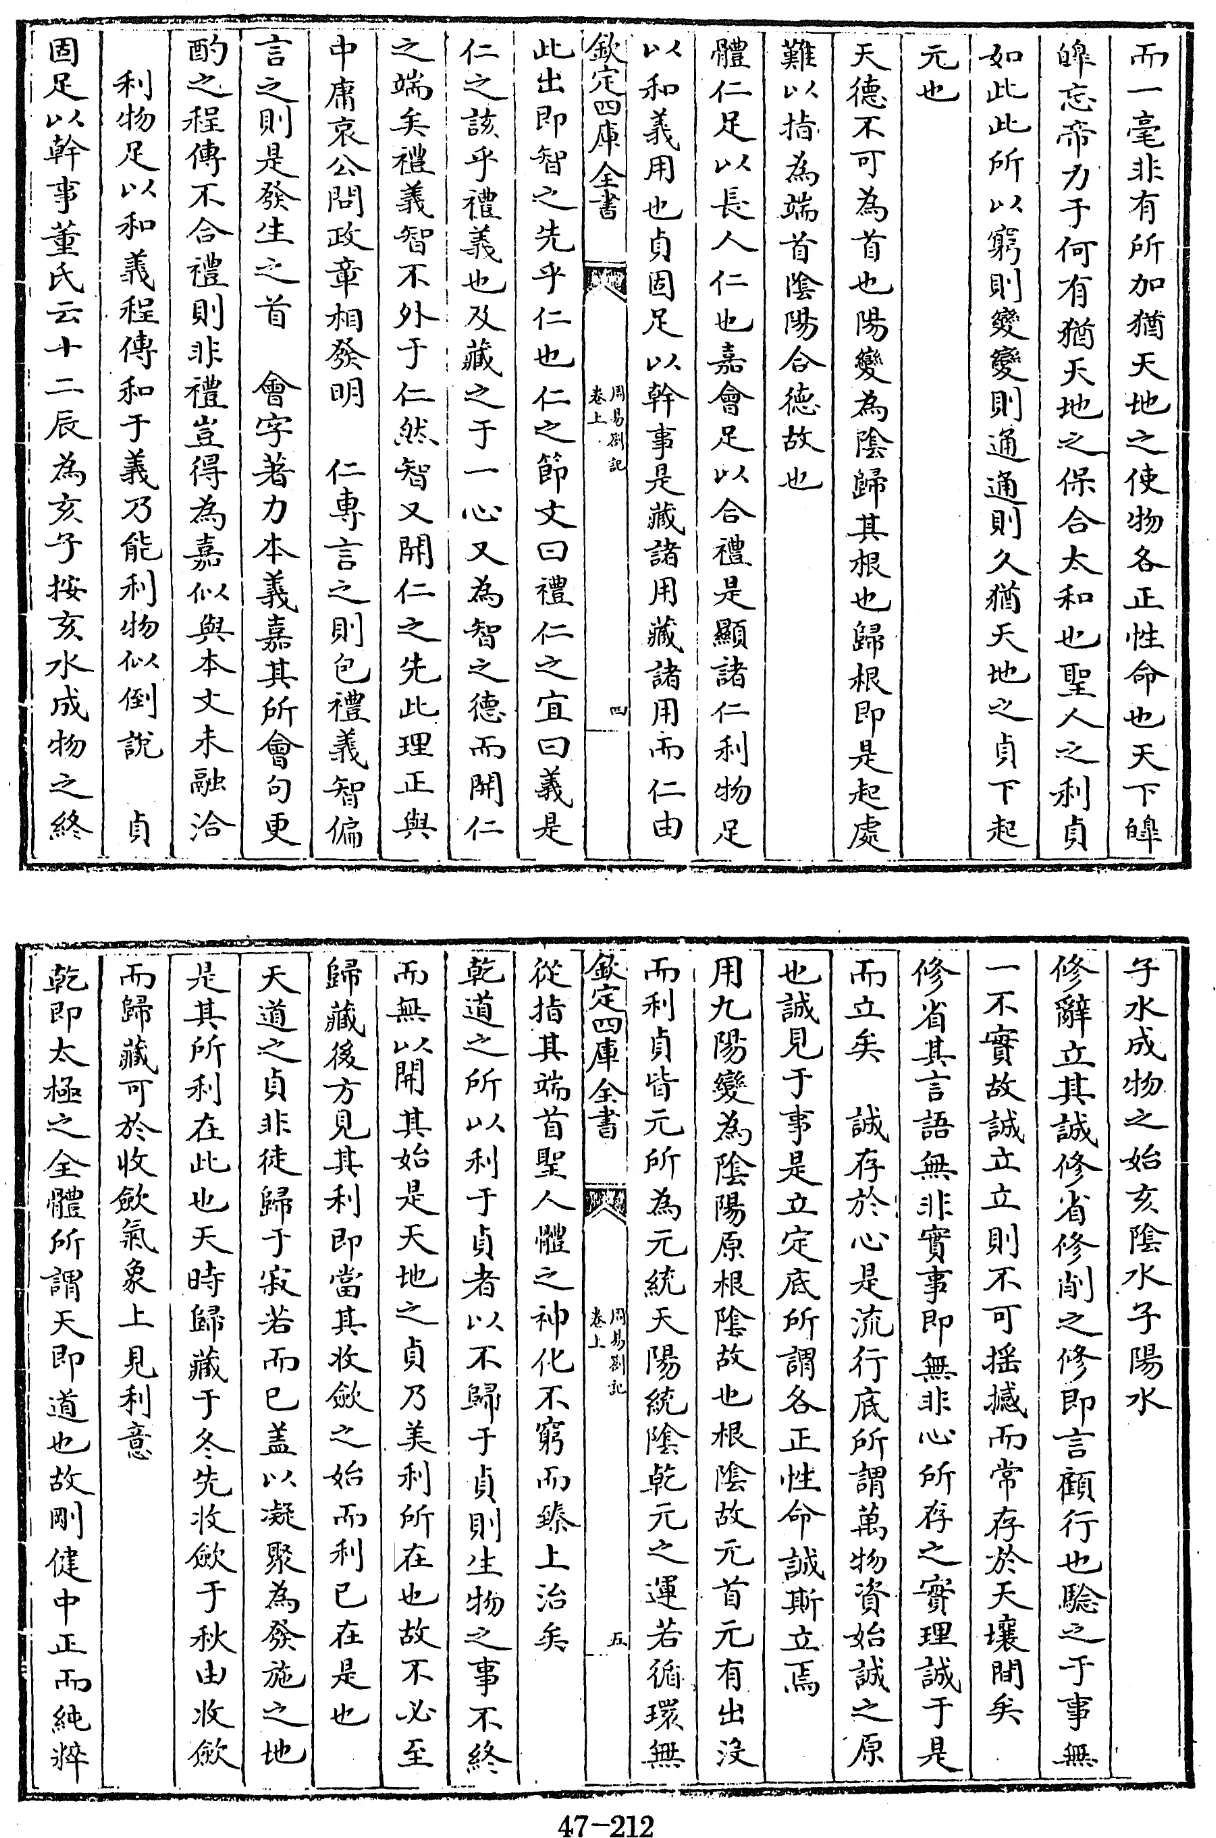 而一毫非有所加猶天地之使物各正性命也天下皥
皥忘帝力于何有猶天地之保合太和也聖人之利貞
如此此所以窮則變變則通通則久猶天地之貞下起
元也
天德不可為首也陽變為陰歸其根也歸根即是起處
難以指為端首陰陽合德故也
體仁足以長人仁也嘉會足以合禮是顯諸仁利物足
以和義用也貞固足以幹事是藏諸用藏諸用而仁由
欽定四庫全書
周易劄記
卷上
四
此出即智之先乎仁也仁之節文曰禮仁之宜曰義是
仁之該乎禮義也及藏之于一心又為智之德而開仁
之端矣禮義智不外于仁然智又開仁之先此理正與
中庸哀公問政章相發明　仁專言之則包禮義智偏
言之則是發生之首　會字著力本義嘉其所會句更
酌之程傳不合禮則非禮豈得為嘉似與本文未融洽
利物足以和義程傳和于義乃能利物似倒說　貞
固足以幹事董氏云十二辰為亥子按亥水成物之終
子水成物之始亥陰水子陽水
修辭立其誠修省修削之修即言顧行也驗之于事無
一不實故誠立立則不可搖撼而常存於天壤間矣
修省其言語無非實事即無非心所存之實理誠于是
而立矣　誠存於心是流行底所謂萬物資始誠之原
也誠見于事是立定底所謂各正性命誠斯立焉
用九陽變為陰陽原根陰故也根陰故元首元有出沒
而利貞皆元所為元統天陽統陰乾元之運若循環無
欽定四庫全書
周易劄記
卷上
五
從指其端首聖人體之神化不窮而臻上治矣
乾道之所以利于貞者以不歸于貞則生物之事不終
而無以開其始是天地之貞乃美利所在也故不必至
歸藏後方見其利即當其收斂之始而利已在是也
天道之貞非徒歸于寂若而已蓋以凝聚為發施之地
是其所利在此也天時歸藏于冬先收斂于秋由收斂
而歸藏可於收斂氣象上見利意
乾即太極之全體所謂天即道也故剛健中正而純粹
47-212